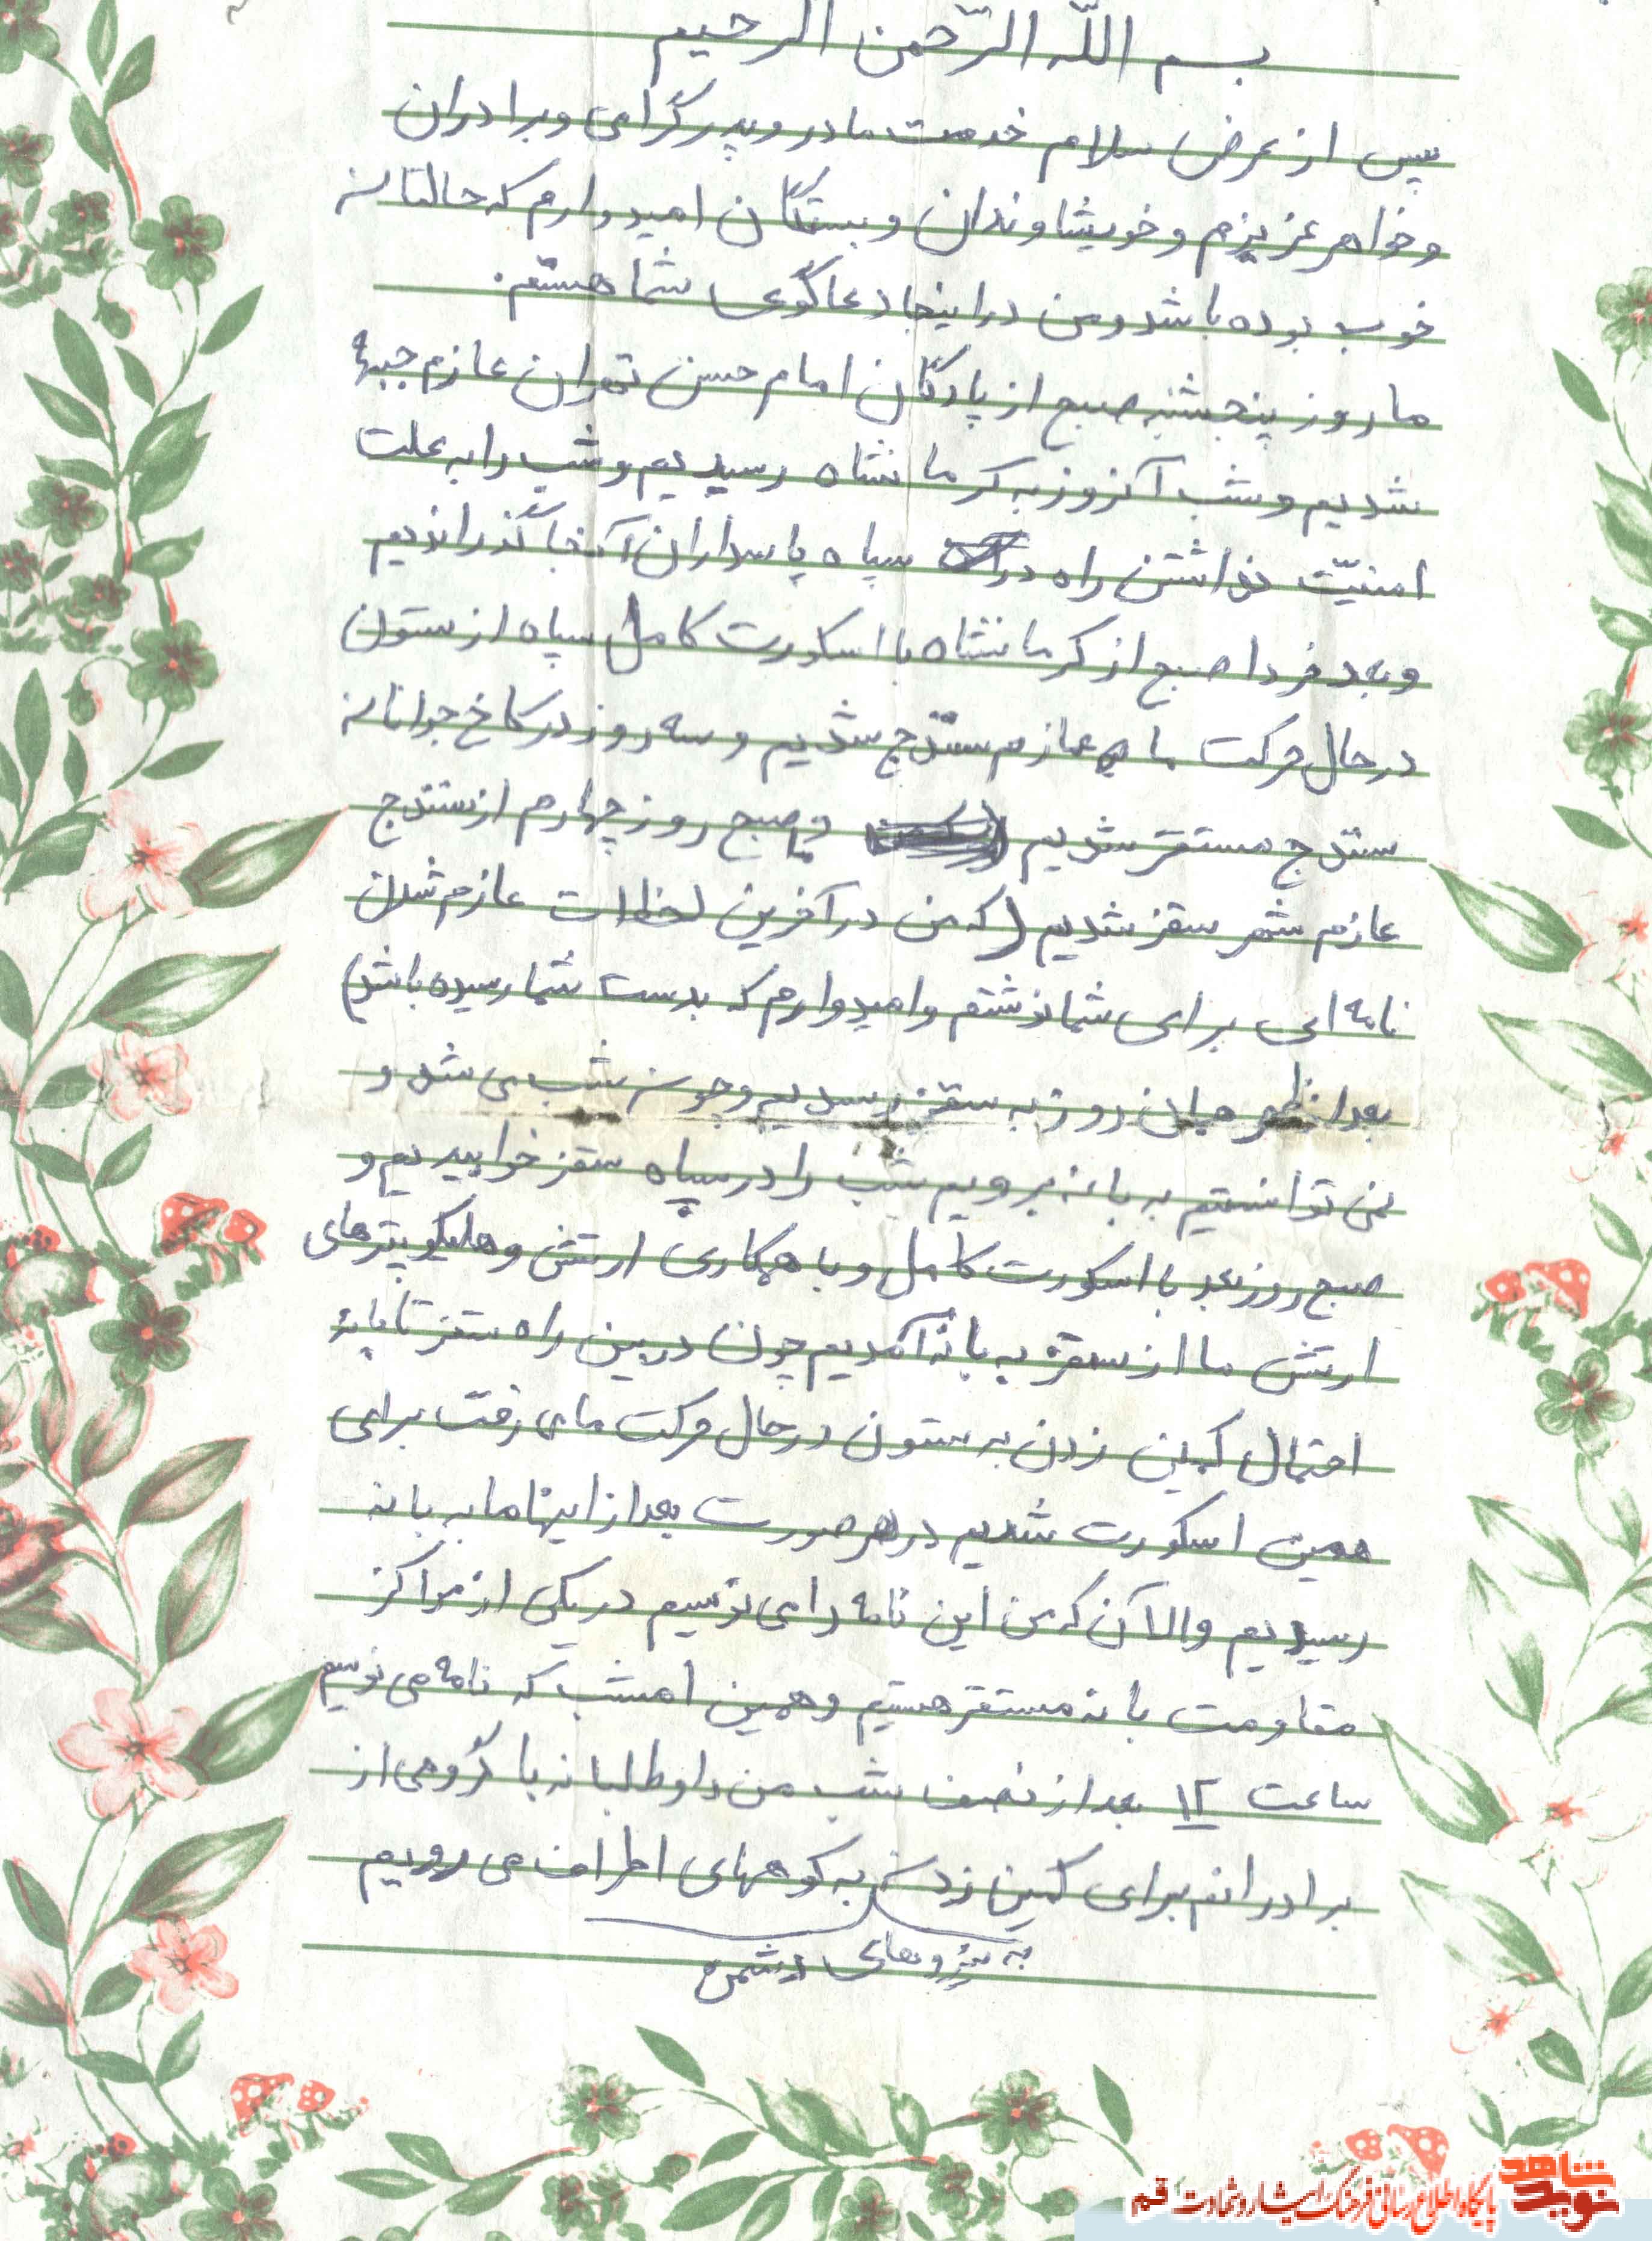 بسم اللّه الرّحمن الرحیم
پس از عرض سلام خدمت مادر و پدر گرامی و برادران
و خواهر عزیزم و خویشاوندان و بستگان امیدوارم که حالتان
خوب بوده باشد و من در اینجا دعاگوی شما هستم.
ما روز پنجشنبه صبح از پادگان امام حسن تهران عازم جبهه
شدیم و شب آنروز به کرمانشاه رسیدیم و شب را به علت
امنیّت نداشتن راه در سپاه پاسداران آنجا گذراندیم
و بعد فردا صبح از کرمانشاه با اسکورت کامل سپاه از ستون
در حال حرکت ما عازم سنندج شدیم و سه روز در کاخ جوانان
سنندج مستقر شدیم و ما صبح روز چهارم از سنندج
عازم شهر سقز شدیم (که من در آخرین لحظات عازم شدن
نامه ای برای شما نوشتم و امیدوارم که بدست شما رسیده باشد)
بعد از ظهر همان روز به سقز رسیدیم و چون شب می شد و
نمی توانستیم به بانه برویم شب را در سپاه سقز خوابیدیم و
صبح روز بعد با اسکورت کامل و با همکاری ارتش و هلیکوپترهای
ارتش ما از سقز به بانه آمدیم چون در بین راه سقز تا بانه
احتمال کمین زدن به ستون در حال حرکت ما می رفت برای
همین اسکورت شدیم در هر صورت بعد از اینها ما به بانه
رسیدیم و الآن که من این نامه را می نویسم در یکی از مراکز
مقاومت بانه مستقر هستیم و همین امشب که نامه می نویسم
ساعت ۱۲ بعد از نصف شب من داوطلبانه با گروهی از
برادرانم برای کمین زدن به کوههای اطراف می رویم
به نیروهای دشمن
نوید شاهد
پایگاه اطلاع رسانی فرهنگ ایثار و شهادت قم